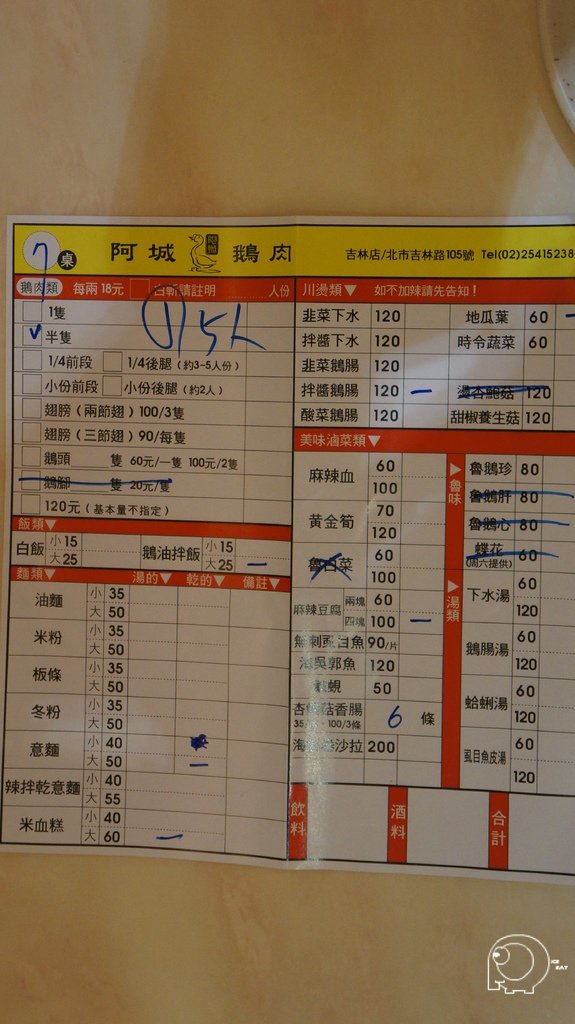 7 桌 阿城 鵝肉 吉林店/北市吉林路105號 Tel(02)25415238
鵝肉類 每兩18元 白斬請註明 人份
1隻
✓ 半隻
1/4前段 1/4後腿 (約3~5人份)
小份前段 小份後腿 (約2人)
翅膀 (兩節翅) 100/3隻
翅膀 (三節翅) 90/每隻
鵝頭 隻 60元/一隻 100元/2隻
鵝腳 隻 20元/隻
120元 (基本量不指定)
飯類▼
白飯 小15 大25 鵝油拌飯 小15 大25 一
麵類▼ 湯的▼ 乾的▼ 備註▼
油麵 小 35
大 50
米粉 小 35
大 50
板條 小 35
大 50
冬粉 小 35
大 50
意麵 小 40
大 50 一
辣拌乾意麵 小 40
大 55
米血糕 小 40
大 60 一
川燙類▼ 如不加辣請先告知！
韭菜下水 120 地瓜葉 60
拌醬下水 120 時令蔬菜 60
韭菜鵝腸 120
拌醬鵝腸 120 一 燙杏鮑菇 120
酸菜鵝腸 120 甜椒養生菇 120
美味滷菜類▼
麻辣血 60
100
黃金筍 70
120
魯白菜 60
100
麻辣豆腐 兩塊 60
四塊 100 一
無刺虱目魚 90/片
吳郭魚 120
蜆 50
杏鮑菇香腸 6 條
100/3條
沙拉 200
▶魯味
魯鵝珍 80
魯鵝肝 80
魯鵝心 80
蝶花 60
(周六提供)
▶湯類
下水湯 60
120
鵝腸湯 60
120
蛤蜊湯 60
120
虱目魚皮湯 60
120
飲料 酒料 合計
ICE
EAT